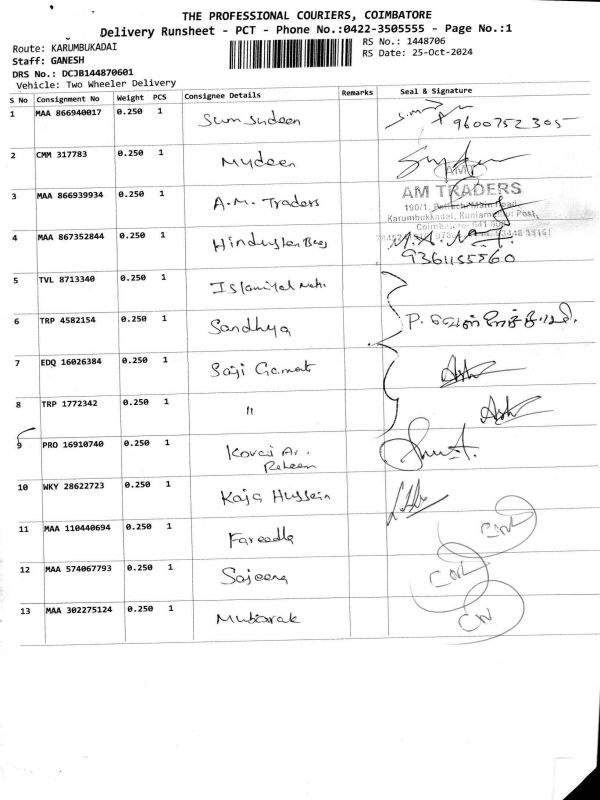 THE PROFESSIONAL COURIERS, COIMBATORE
Delivery Runsheet - PCT - Phone No.:0422-3505555 - Page No.:1
Route: KARUMBUKADAI
RS No.: 1448706
Staff: GANESH
RS Date: 25-Oct-2024
DRS No.: DCJB144870601
Vehicle: Two Wheeler Delivery
S No Consignment No Weight PCS Consignee Details Remarks Seal & Signature
1 MAA 866940017 0.250 1 Sumsudeen
9600752305
2 CMM 317783 0.250 1 Mydeen
3 MAA 866939934 0.250 1 A.M. Traders
AMT
AM TRADERS
190/1, Main Road,
Karumbukkadai, Post,
4 MAA 867352844 0.250 1 Hindustan
9361155560
5 TVL 8713340 0.250 1
6 TRP 4582154 0.250 1 Sandhya P.
7 EDQ 16026384 0.250 1 Saji
8 TRP 1772342 0.250 1 "
9 PRO 16910740 0.250 1 Kovai Ar.
10 WKY 28622723 0.250 1 Kaja Hussein
11 MAA 110440694 0.250 1 Fareedha
12 MAA 574067793 0.250 1 Sajeena
13 MAA 302275124 0.250 1 Mubarak